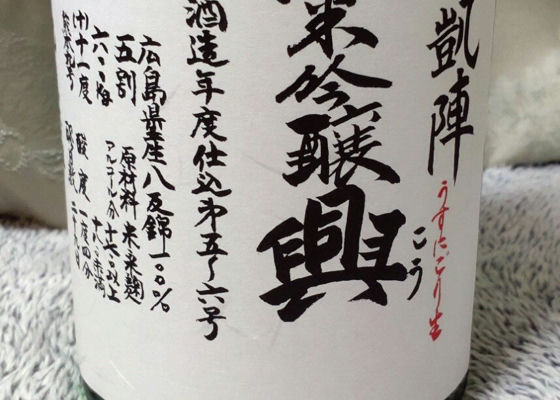 凱陣
うすにごり生
米吟醸
興
こう
酒造年度仕込第五〜六号
広島県産八反錦一〇〇%
五割
原材料 米 米麹
六〇〇kg
アルコール分 十六〇以上
(+)十一度
酸度